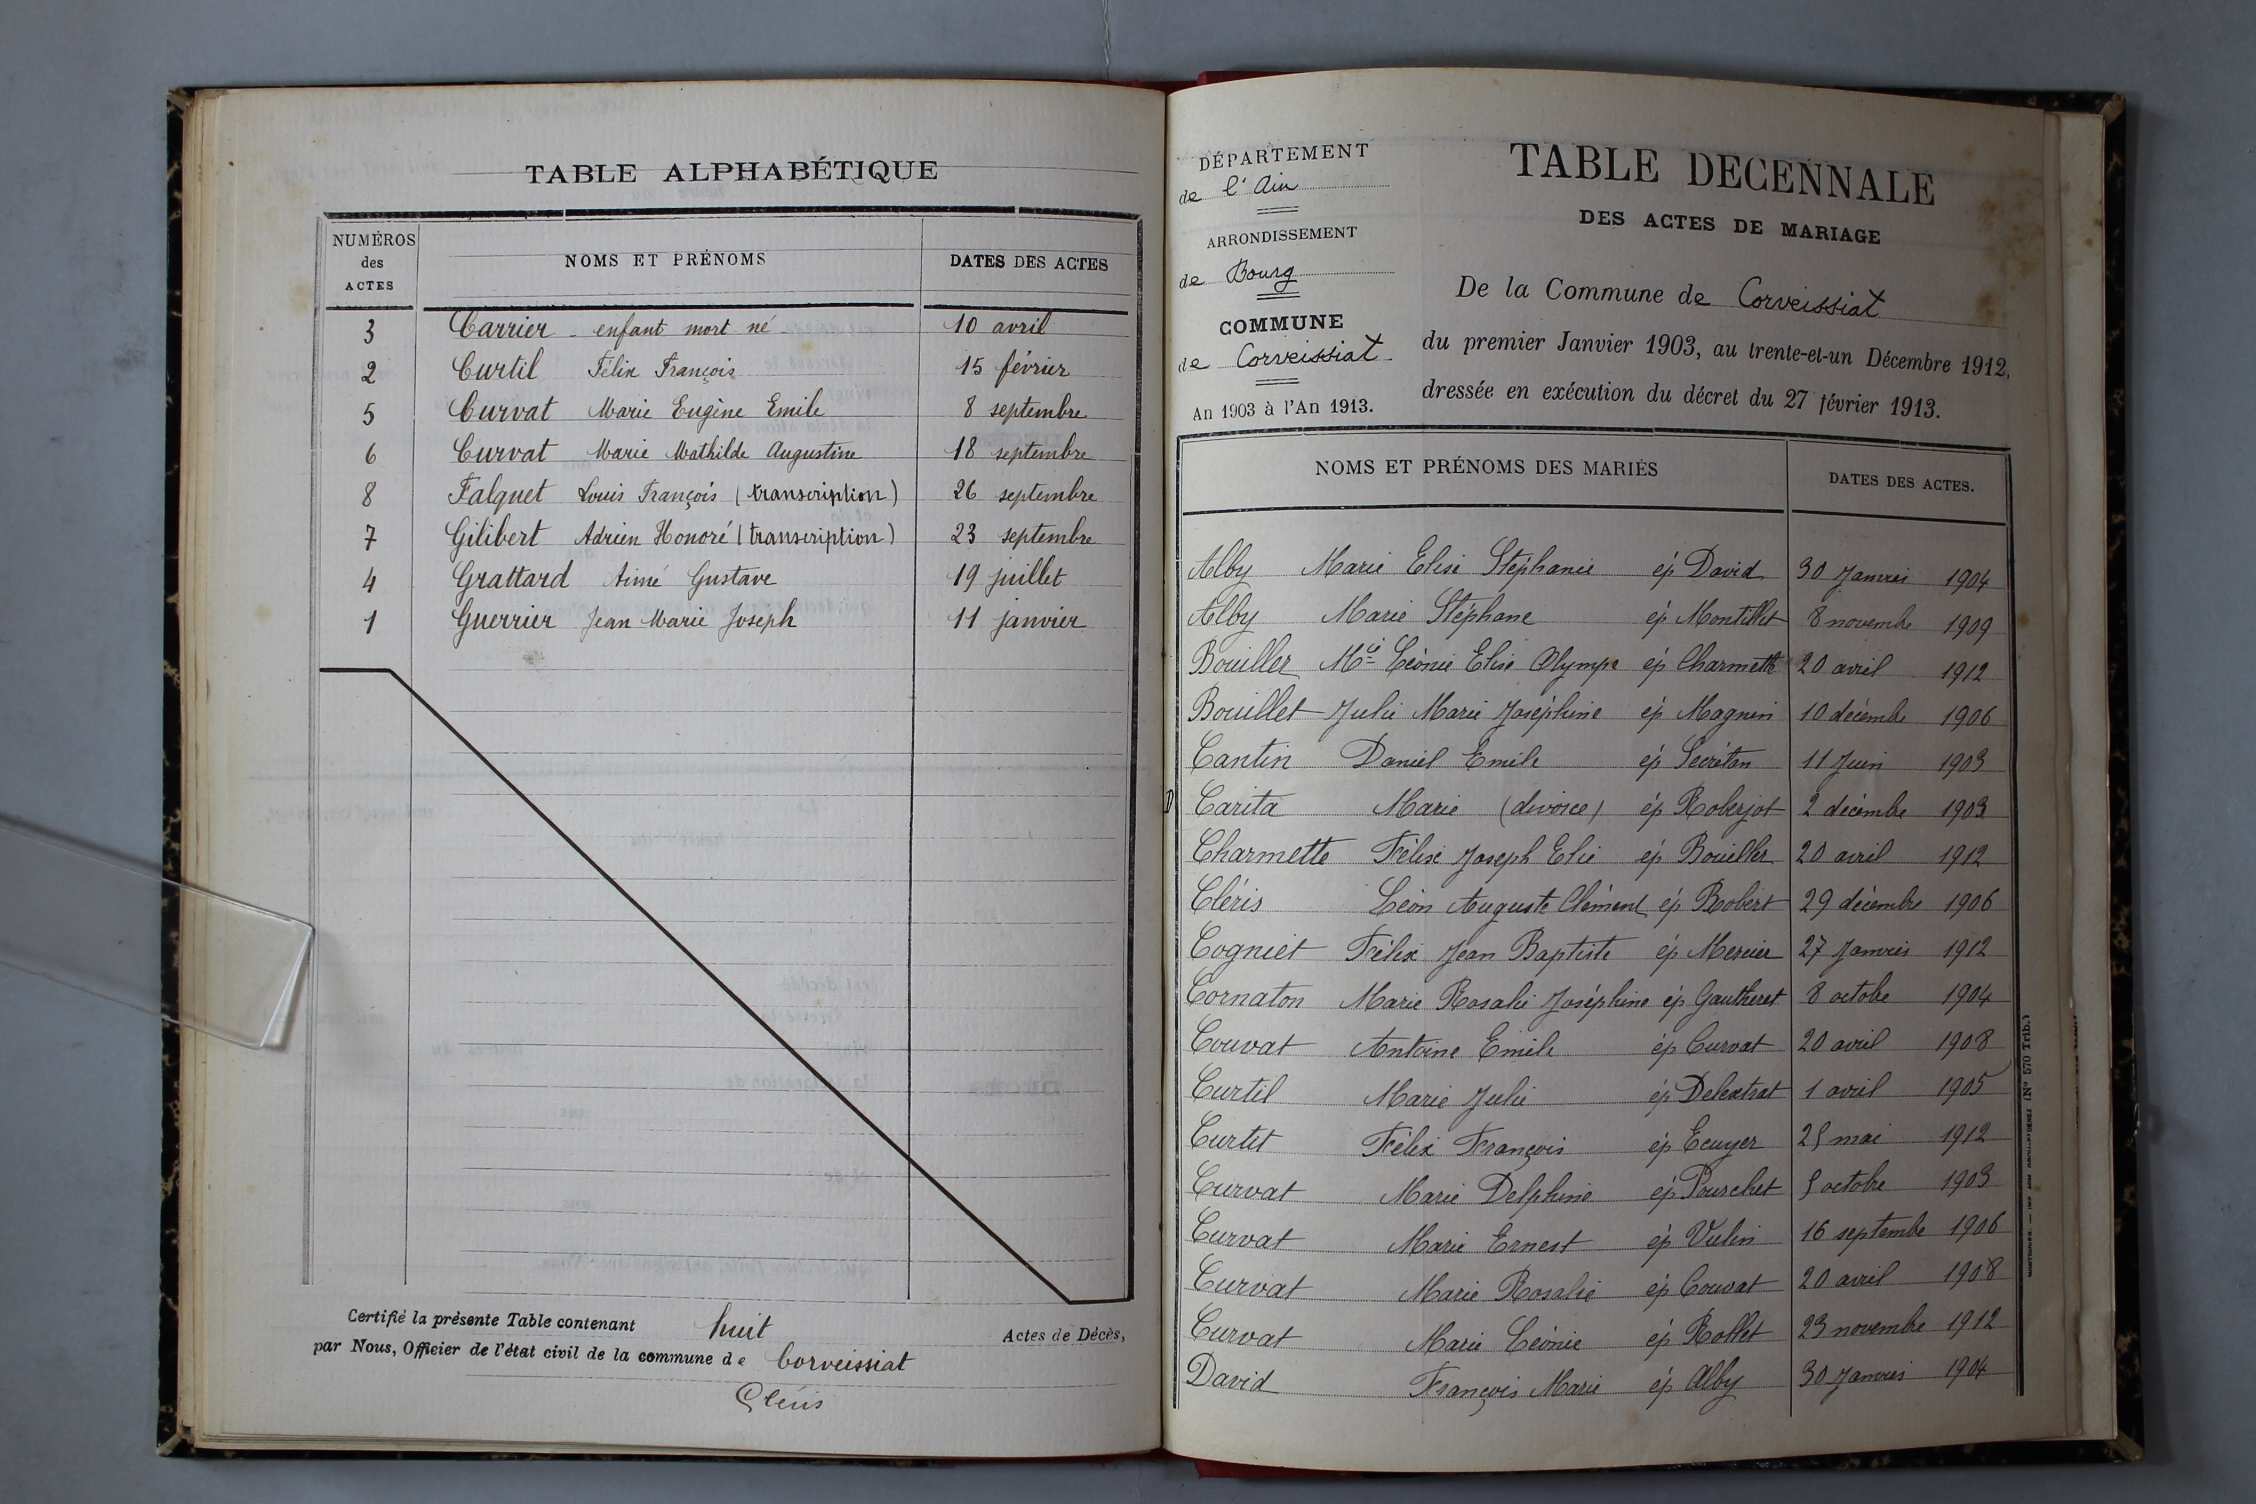 TABLE ALPHABÉTIQUE
NUMÉROS des ACTES NOMS ET PRÉNOMS DATES DES ACTES
3 Carrier enfant mort né 10 avril
2 Curtil Félix François 15 février
5 Curvat Marie Eugène Emile 8 septembre
6 Curvat Marie Mathilde Augustine 18 septembre
8 Falquet Louis François (transcription) 26 septembre
7 Gilibert Adrien Honoré (transcription) 23 septembre
4 Grattard Aimé Gustave 19 juillet
1 Guerrier Jean Marie Joseph 11 janvier
Certifié la présente Table contenant huit Actes de Décès,
par Nous, Officier de l'état civil de la commune de Corveissiat
Cléris
DÉPARTEMENT
de l'Ain
ARRONDISSEMENT
de Bourg
COMMUNE
de Corveissiat
An 1903 à l'An 1913.
TABLE DECENNALE
DES ACTES DE MARIAGE
De la Commune de Corveissiat
du premier Janvier 1903, au trente-et-un Décembre 1912,
dressée en exécution du décret du 27 février 1913.
NOMS ET PRÉNOMS DES MARIÉS DATES DES ACTES.
Alby Marie Elise Stéphanie ép David 30 Janvier 1904
Alby Marie Stéphane ép Montillet 8 novembre 1909
Bouiller Mie Léonie Elise Olympe ép Charmette 20 avril 1912
Bouillet Julie Marie Joséphine ép Magnin 10 décembre 1906
Cantin Daniel Emile ép Secrétan 11 Juin 1903
D Carita Marie (divorce) ép Roberjot 2 décembre 1903
Charmette Félix Joseph Elie ép Bouiller 20 avril 1912
Cléris Léon Auguste Clément ép Robert 29 décembre 1906
Cogniet Félix Jean Baptiste ép Mercier 27 Janvier 1912
Cornaton Marie Rosalie Joséphine ép Gautheret 8 octobre 1904
Couvat Antoine Emile ép Curvat 20 avril 1908
Curtil Marie Julie ép Delextrat 1 avril 1905
Curtit Félix François ép Ecuyer 25 mai 1912
Curvat Marie Delphine ép Pourchet 5 octobre 1903
Curvat Marie Ernest ép Vulin 16 septembre 1906
Curvat Marie Rosalie ép Couvat 20 avril 1908
Curvat Marie Léonie ép Rollet 23 novembre 1912
David François Marie ép Alby 30 Janvier 1904
(N° 570 Trib.)